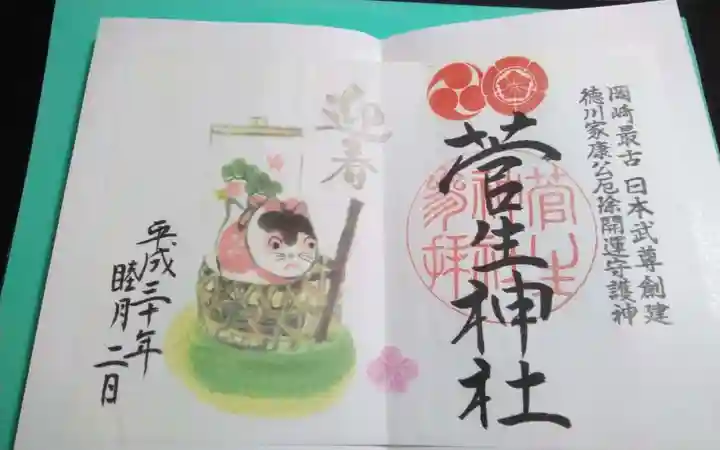 岡崎最古 日本武尊創建
徳川家康公厄除開運守護神
菅生神社
迎春
平成三十年
睦月二日